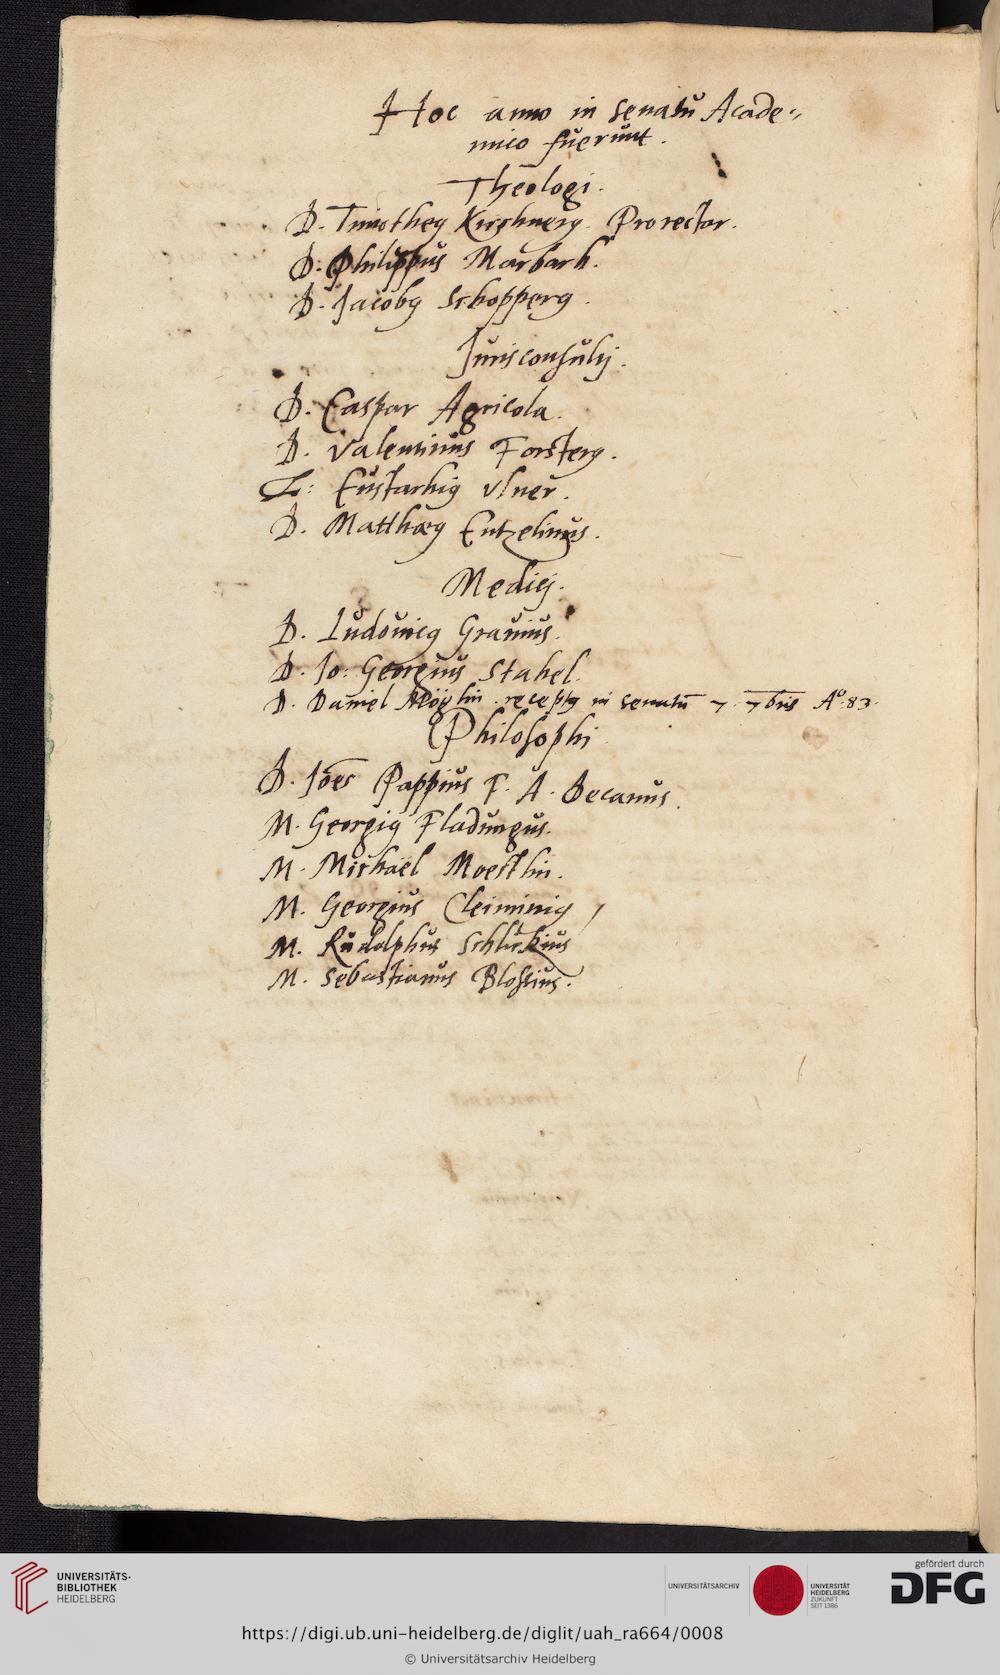 Hoc anno in senatu Acade-,
mico fuerunt.
Theologi.
D. Timotheꝰ Kirchnerꝰ. Prorector.
D. Philippus Marbach.
D. Jacobꝰ Schopperꝰ.
Jurisconsulti.
D. Caspar Agricola.
D. Valentinus Forsterꝰ.
L: Eustachiꝰ Vlner.
D. Matthæꝰ Entzelinus.
Medicj.
D. Ludouicꝰ Grauius.
D. Jo: Georgius Stahel.
D. Daniel Möglin receptꝰ in senatū 7. 7bris Aº. 83.
Philosophi
D. Joēs Pappius F. A. Decanus.
M. Georgiꝰ Fladungus.
M. Michaël Moestlin.
M. Georgius Cleiminiꝰ,
M. Rudolphus Schlickius
M. Sebastianus Blossius.
UNIVERSITÄTS-
BIBLIOTHEK
HEIDELBERG
UNIVERSITÄTSARCHIV
UNIVERSITÄT
HEIDELBERG
ZUKUNFT
SEIT 1386
gefördert durch
DFG
https://digi.ub.uni-heidelberg.de/diglit/uah_ra664/0008
© Universitätsarchiv Heidelberg